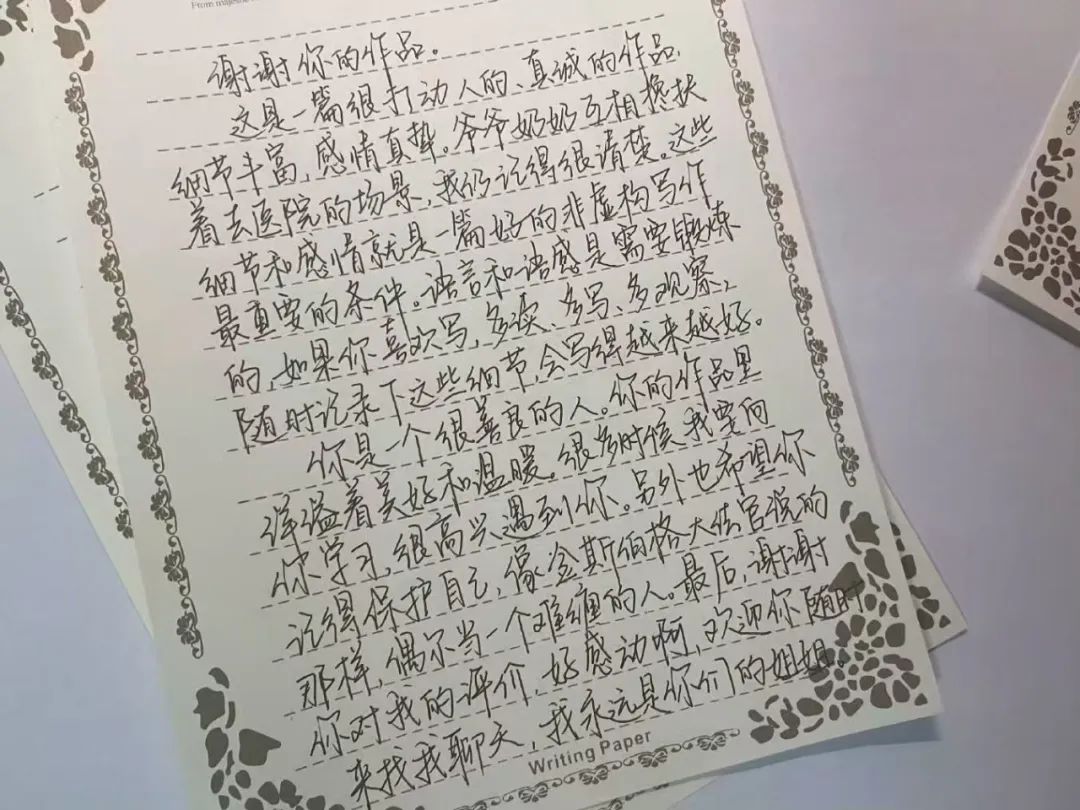 From majestic
谢谢你的作品。
这是一篇很打动人的、真诚的作品,
细节丰富,感情真挚。爷爷奶奶互相搀扶
着去医院的场景,我仍记得很清楚。这些
细节和感情就是一篇好的非虚构写作
最重要的条件。语言和语感是需要锻炼
的,如果你喜欢写,多读、多写、多观察,
随时记录下这些细节,会写得越来越好。
你是一个很善良的人。你的作品里
洋溢着美好和温暖。很多时候我要向
你学习,很高兴遇到你。另外也希望你
记得保护自己,像金斯伯格大法官说的
那样,偶尔当一个难缠的人。最后,谢谢
你对我的评价,好感动啊,欢迎你随时
来找我聊天,我永远是你们的姐姐。
Writing Paper